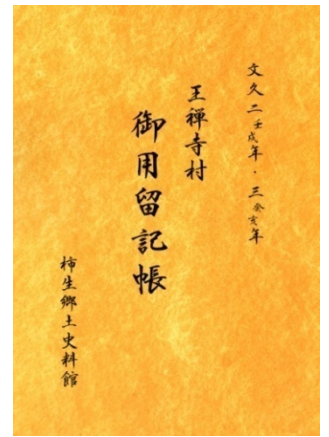 文久二壬戌年・三癸亥年
王禅寺村
御用留記帳
柿生郷土史料館